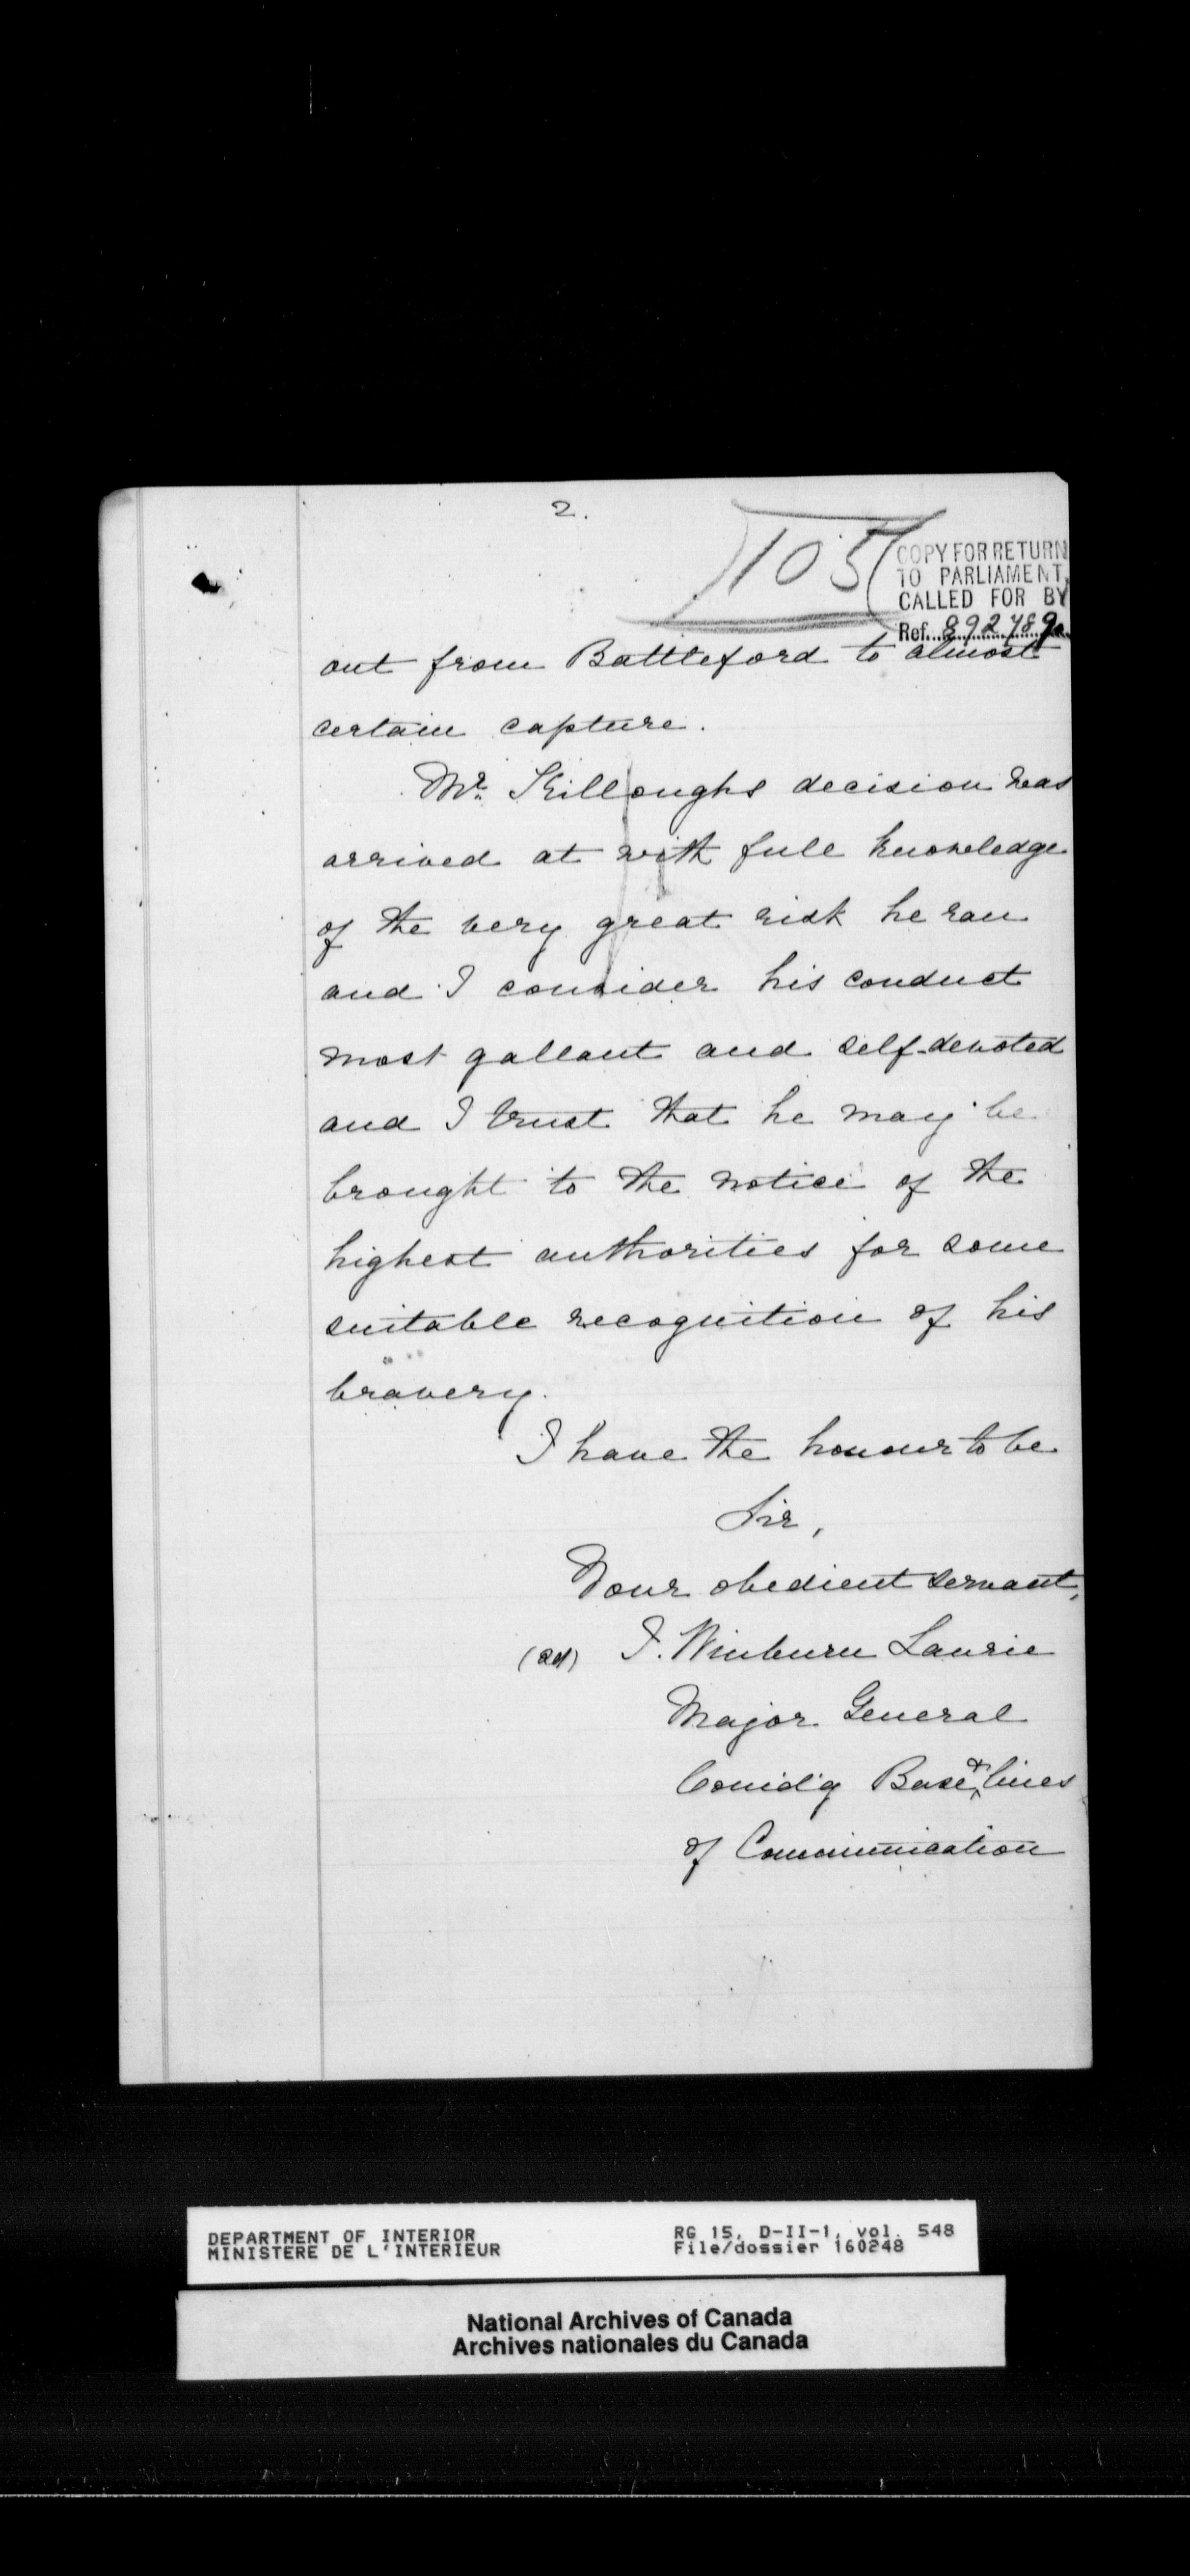 2.
105
COPY FOR RETURN
TO PARLIAMENT,
CALLED FOR BY
Ref. 892789
out from Battleford to almost
certain capture.
Mr. Killoughs decision was
arrived at with full knowledge
of the very great risk he ran
and I consider his conduct
most gallant and self-devoted
and I trust that he may be
brought to the notice of the
highest authorities for some
suitable recognition of his
bravery.
I have the honour to be
Sir,
Your obedient servant,
(sd) J. Winburn Laurie
Major General
Comd'g Base & lines
of Communication
DEPARTMENT OF INTERIOR
MINISTERE DE L'INTERIEUR
RG 15, D-II-1, vol. 548
File/dossier 160248
National Archives of Canada
Archives nationales du Canada